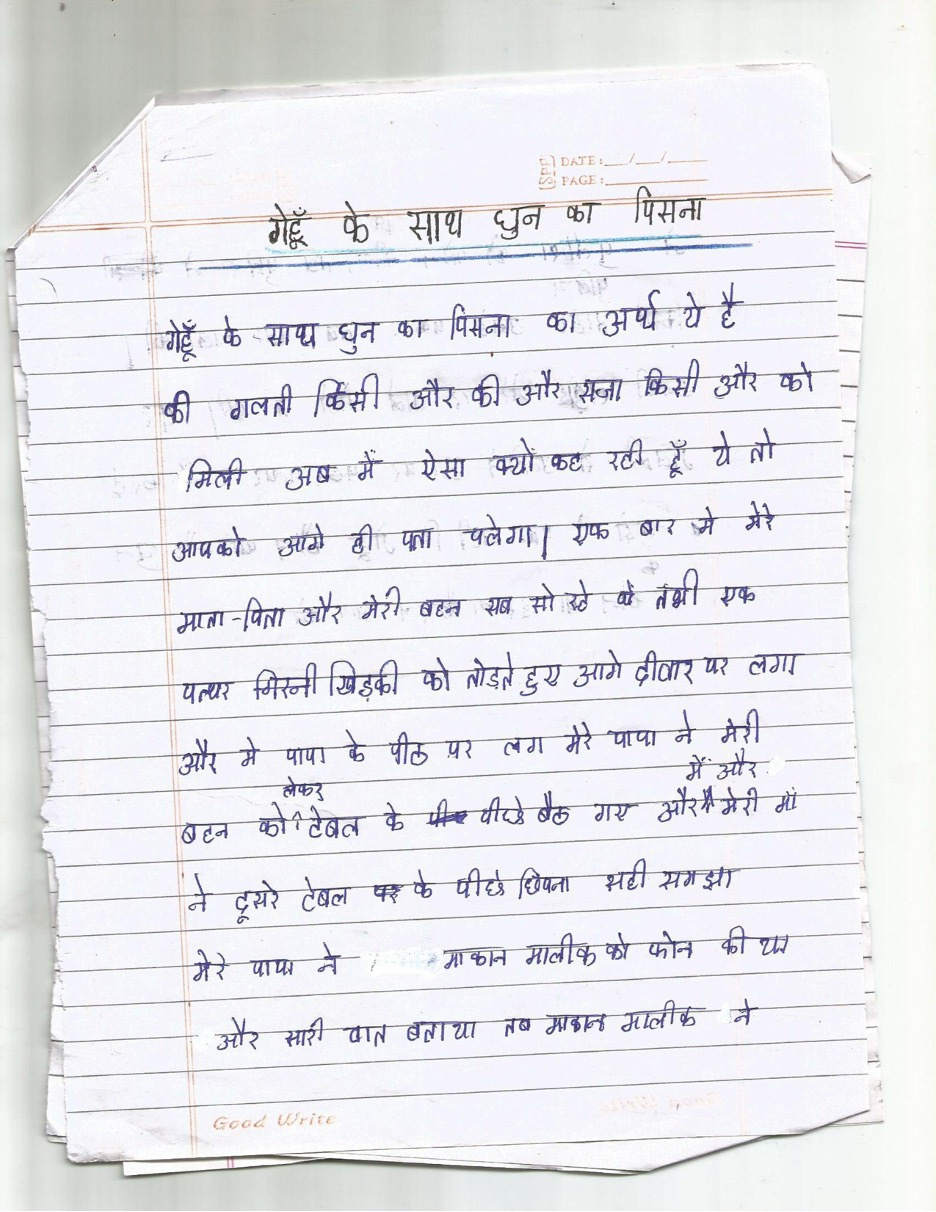 SPL DATE:___/___/_____
PAGE:____________
गेहूँ के साथ घुन का पिसना
गेहूँ के साथ घुन का पिसना का अर्थ ये है
की गलती किसी और की और सजा किसी और को
मिली अब मैं ऐसा क्यों कह रही हूँ ये तो
आपको आगे ही पता चलेगा। एक बार मे मेरे
माता-पिता और मेरी बहन सब सो रहे थे तभी एक
पत्थर खिड़की को तोड़ते हुए आगे दीवार पर लगा
और मे पापा के पीठ पर लग मेरे पापा ने मेरी
में और
लेकर
बहन को टेबल के पीछे बैठ गए और मेरी माँ
ने दूसरे टेबल के पीछे छिपना सही समझा
मेरे पापा ने माकान मालीक को फोन की या
और सारी बात बताया तब माकान मालीक ने
Good Write